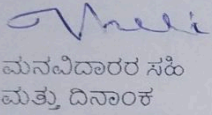 ಮನವಿದಾರರ ಸಹಿ
ಮತ್ತು ದಿನಾಂಕ